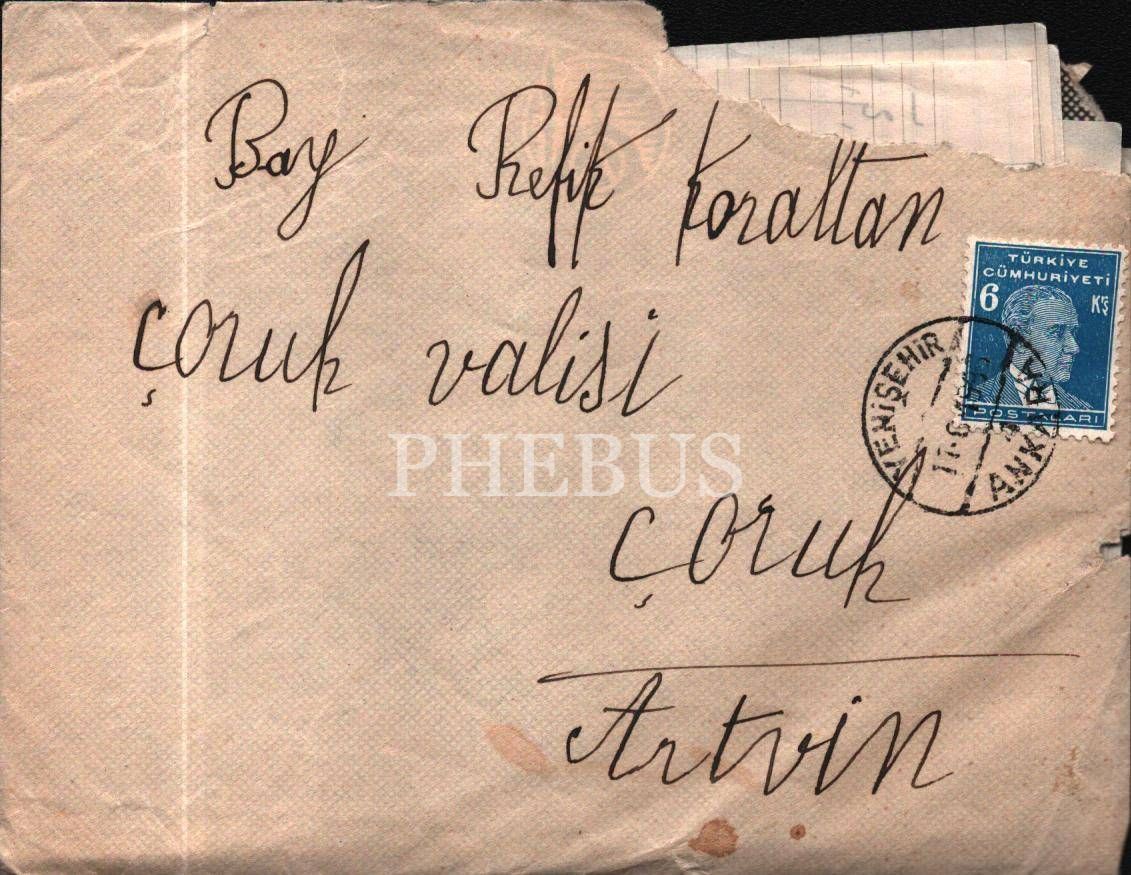 Bay Refik Koraltan
Çoruh valisi
Çoruh
Artvin
TÜRKİYE
CÜMHURİYETİ
6 Krş
POSTALARI
YENİŞEHİR
ANKARA
PHEBUS